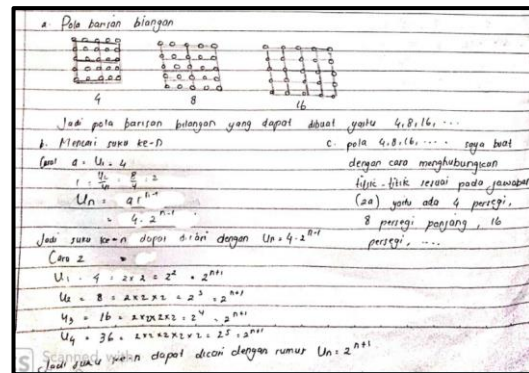 a. Pola barisan biangan
4 8 16
Jadi pola barisan bilangan yang dapat dibuat yaitu 4,8,16, ...
b. Mencari suku ke-n
Cara 1 a = U₁ = 4
r = U₂/U₁ = 8/4 = 2
Un = ar^n-1
= 4.2^n-1
Jadi suku ke-n dapat dicari dengan Un = 4.2^n-1
Cara 2
U₁ = 4 = 2x2 = 2² = 2^n+1
U₂ = 8 = 2x2x2 = 2³ = 2^n+1
U₃ = 16 = 2x2x2x2 = 2⁴ = 2^n+1
U₄ = 36 = 2x2x2x2x2 = 2⁵ = 2^n+1
Jadi suku ke-n dapat dicari dengan rumus Un = 2^n+1
c. pola 4.8.16, .... saya buat
dengan cara menghubungkan
titik-titik sesuai pada jawaban
(2a) yaitu ada 4 persegi,
8 persegi panjang, 16
persegi, ....
Scanned with